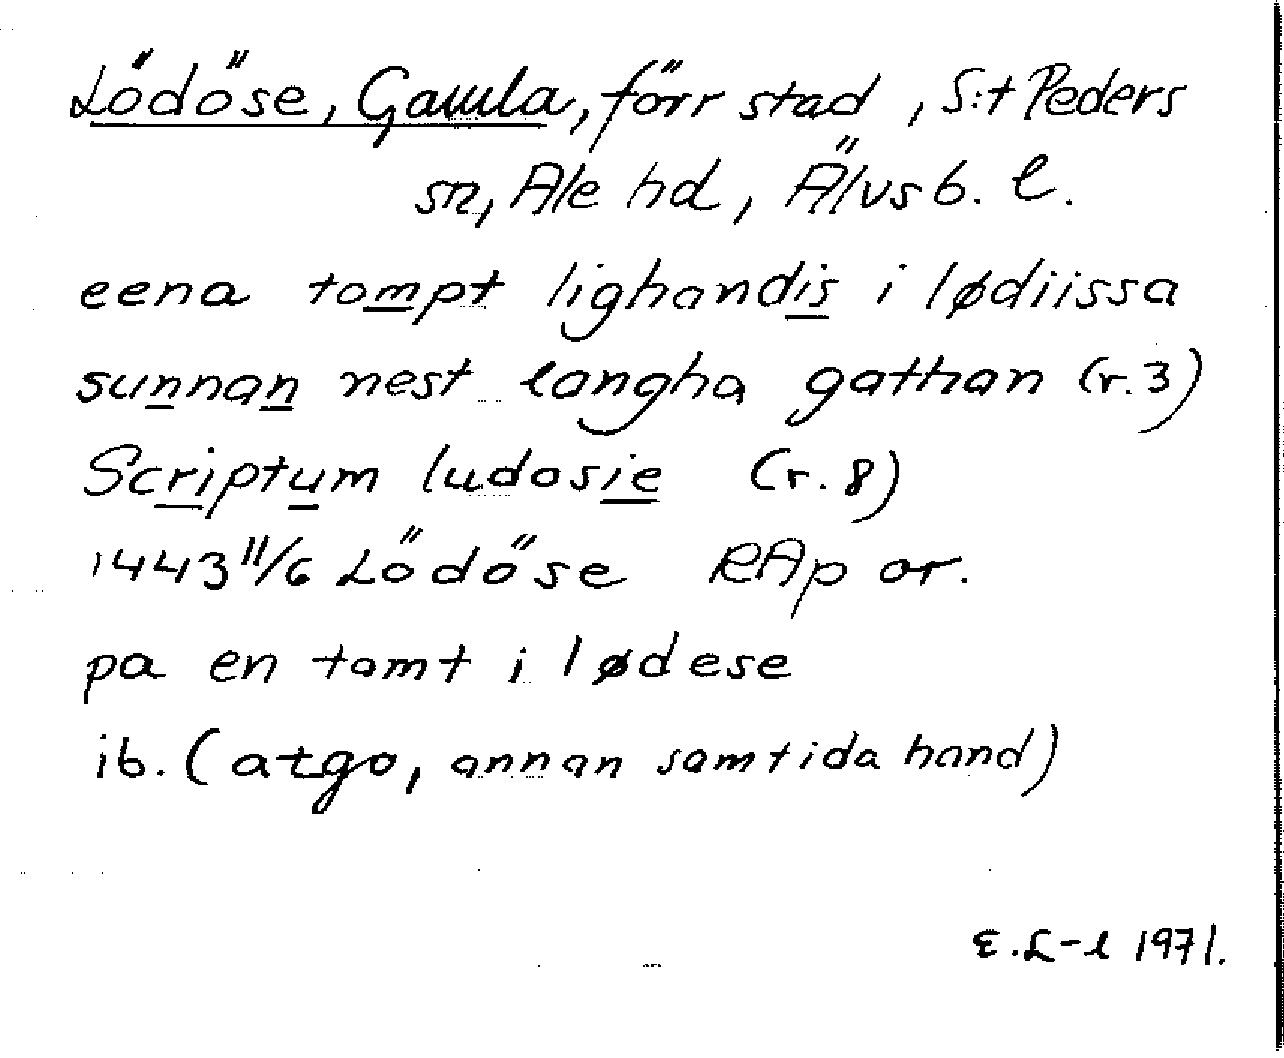 Lödöse, Gamla, förr stad, S:t Peders
sn, Ale hd, Älvsb. l.
eena tompt lighandis i lødiissa
sunnan nest langha gathan (r.3)
Scriptum ludosie (r.8)
1443 11/6 Lödöse RAp or.
pa en tomt i lødese
ib. (atgo, annan samtida hand)
E.L-l 1971.